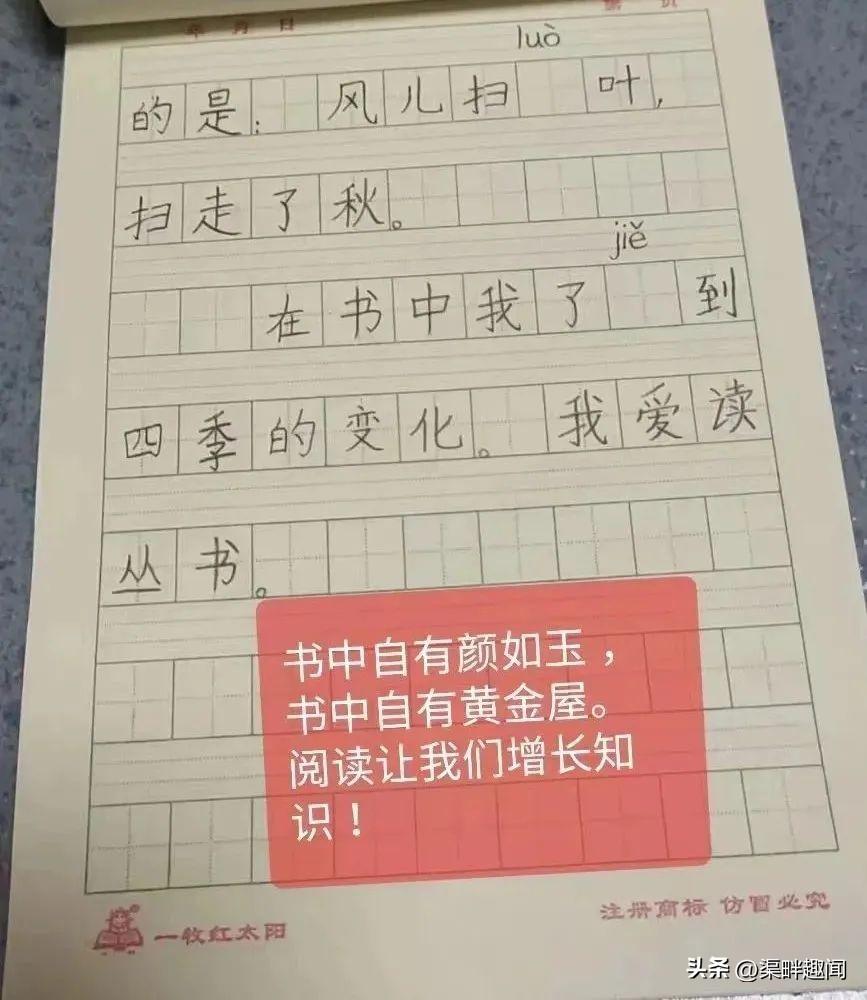 年 月 日
第 页
luò
的是：风儿扫 叶，
扫走了秋。
jiě
在书中我了 到
四季的变化。 我爱读
丛书。
书中自有颜如玉，
书中自有黄金屋。
阅读让我们增长知
识！
一牧红太阳
注册商标 仿冒必究
头条 @渠畔趣闻